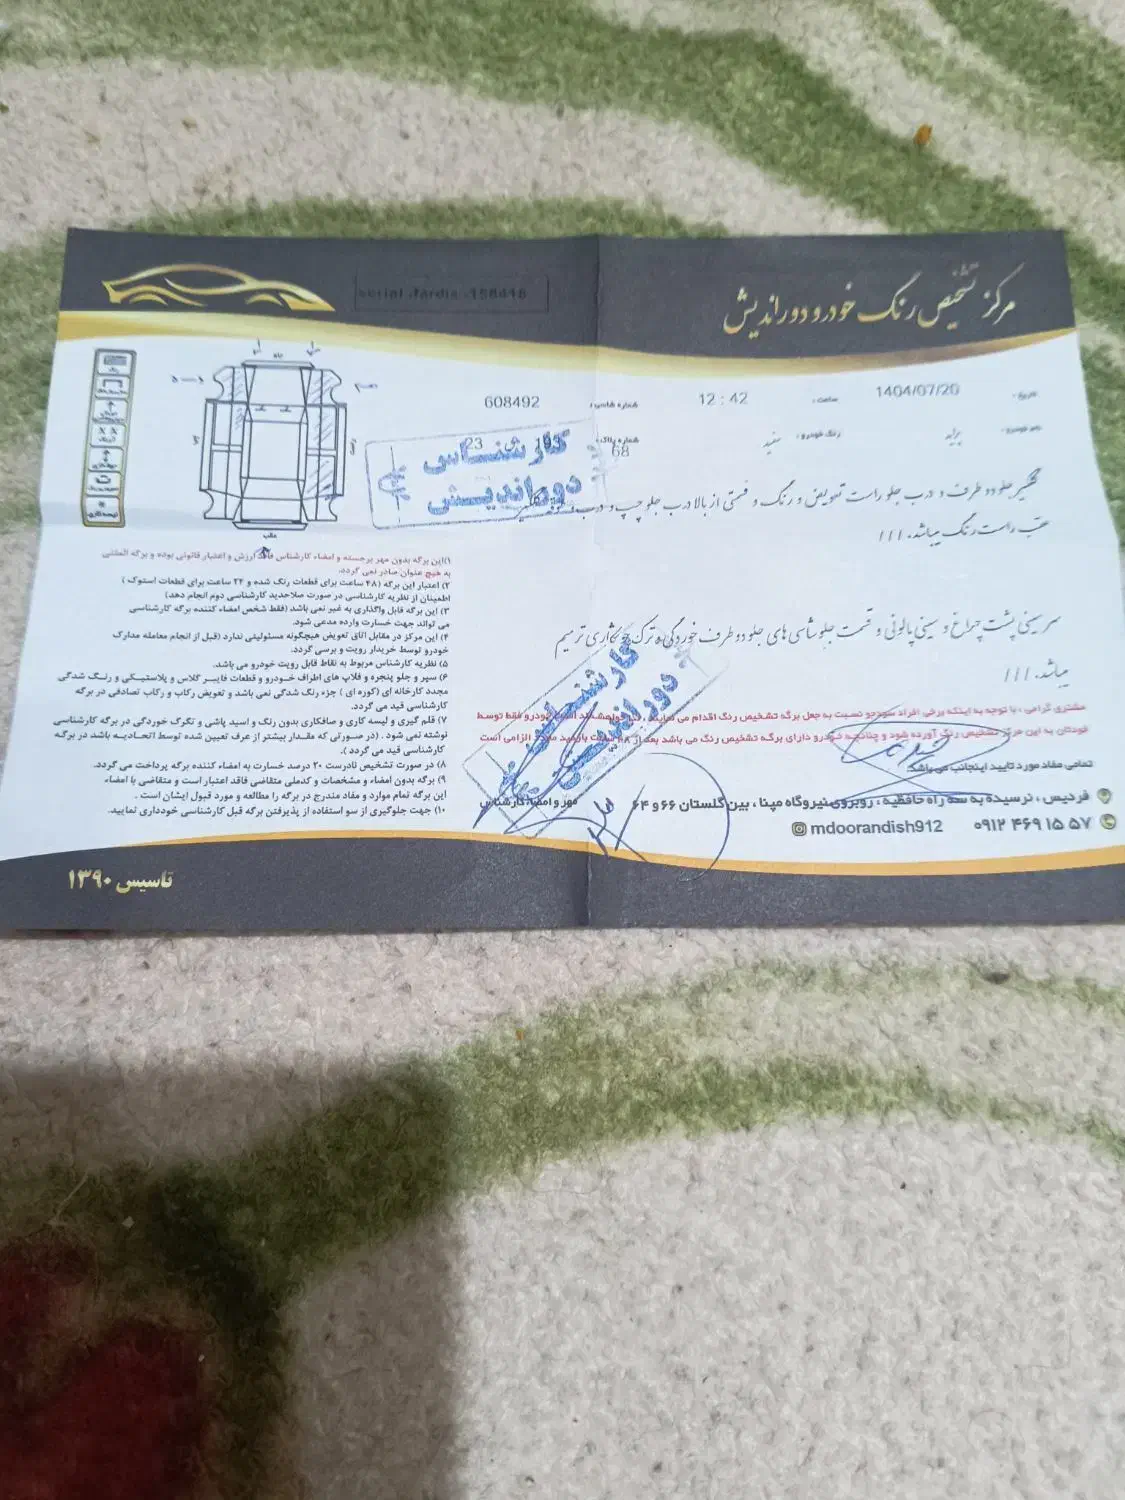 مرکز تشخیص رنگ خودرو دوراندیش
serial .fardis .158418
تاریخ : 1404/07/20
ساعت : 12 : 42
شماره شاسی : 608492
نام خودرو : پراید
رنگ خودرو : سفید
شماره پلاک : 23
68
کارشناس
دوراندیش
گلگیر جلو دو طرف و درب جلو راست تعویض و رنگ و قسمتی از بالا درب جلو چپ و درب و
عقب راست رنگ میباشد. / / /
سرسینی پشت چراغ و سینی پالونی و قسمت جلو شاسی های جلو دو طرف خوردگی و ترک جوشکاری ترمیم
میباشد. / / /
جلو
راست
چپ
عقب
۱)این برگه بدون مهر برجسته و امضاء کارشناس فاقد ارزش و اعتبار قانونی بوده و برگه المثنی
به هیچ عنوان صادر نمی گردد.
۲) اعتبار این برگه (۴۸ ساعت برای قطعات رنگ شده و ۲۴ ساعت برای قطعات استوک )
اطمینان از نظریه کارشناسی در صورت صلاحدید کارشناسی دوم انجام دهد)
۳) این برگه قابل واگذاری به غیر نمی باشد (فقط شخص امضاء کننده برگه کارشناسی
می تواند جهت خسارت وارده مدعی شود.
۴) این مرکز در مقابل اتاق تعویض هیچگونه مسئولیتی ندارد (قبل از انجام معامله مدارک
خودرو توسط خریدار رویت و برسی گردد.
۵) نظریه کارشناس مربوط به نقاط قابل رویت خودرو می باشد.
۶) سپر و جلو پنجره و فلاپ های اطراف خودرو و قطعات فایبر گلاس و پلاستیکی و رنگ شدگی
مجدد کارخانه ای (کوره ای ) جزء رنگ شدگی نمی باشد و تعویض رکاب و رکاب تصادفی در برگه
کارشناسی قید می گردد.
۷) قلم گیری و لیسه کاری و صافکاری بدون رنگ و اسید پاشی و تگرگ خوردگی در برگه کارشناسی
نوشته نمی شود . (در صورتی که مقدار بیشتر از عرف تعیین شده توسط اتحادیه باشد در برگه
کارشناسی قید می گردد ).
۸) در صورت تشخیص نادرست ۲۰ درصد خسارت به امضاء کننده برگه پرداخت می گردد.
۹) برگه بدون امضاء و مشخصات و کدملی متقاضی فاقد اعتبار است و متقاضی با امضاء
این برگه تمام موارد و مفاد مندرج در برگه را مطالعه و مورد قبول ایشان است .
۱۰) جهت جلوگیری از سو استفاده از پذیرفتن برگه قبل کارشناسی خودداری نمایید.
مشتری گرامی ، با توجه به اینکه برخی افراد سودجو نسبت به جعل برگه تشخیص رنگ اقدام می نمایند ، لذا خواهشمند است خودرو فقط توسط
خودتان به این مرکز تشخیص رنگ آورده شود و چنانچه خودرو دارای برگه تشخیص رنگ می باشد بعد از ۴۸ ساعت بازدید مجدد الزامی است
تمامی مفاد مورد تایید اینجانب می باشد
مهر و امضاء کارشناس
کارشناس
دوراندیش
فردیس ، نرسیده به سه راه حافظیه ، روبروی نیروگاه مپنا ، بین گلستان ۶۶ و ۶۴
۰۹۱۲ ۴۶۹ ۱۵ ۵۷
mdoorandish912
تاسیس ۱۳۹۰